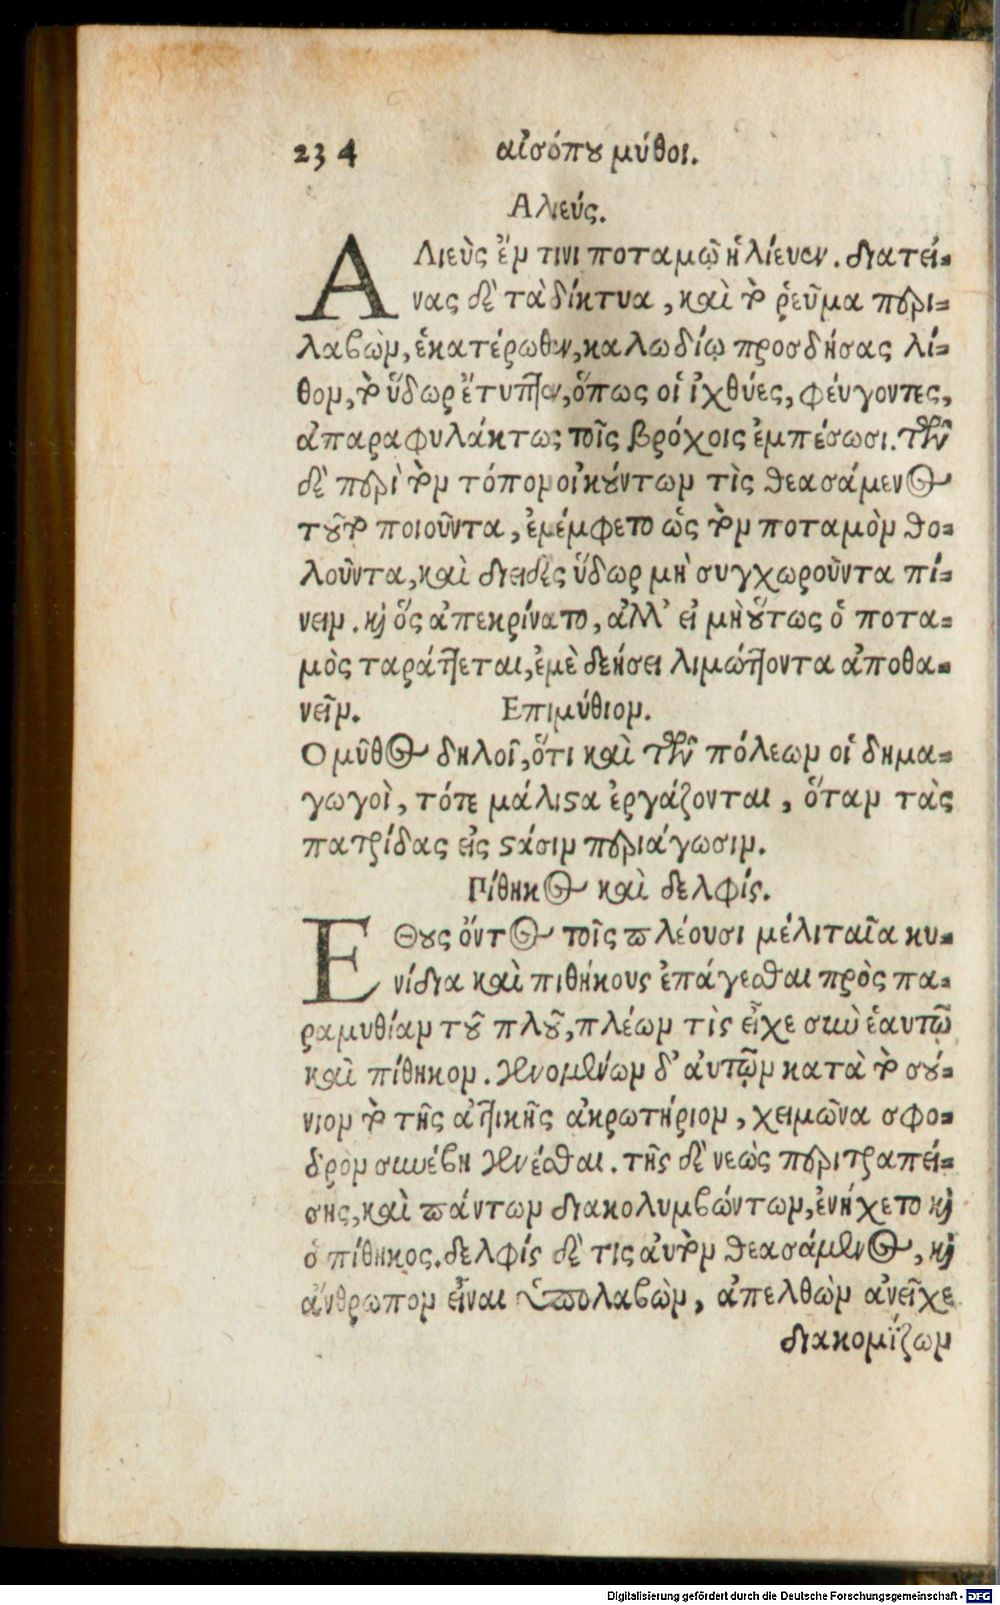 234 αἰσόπου μύθοι.
Αλιεύς.
ΑΛιεὺς ἔν τινι ποταμῷ ἡλίευεν. διατεί-
νας δὲ τὰ δίκτυα, καὶ τὸ ῥεῦμα περι-
λαβὼν, ἑκατέρωθεν, καλωδίῳ προσδήσας λί-
θον, τὸ ὕδωρ ἔτυπτεν, ὅπως οἱ ἰχθύες, φέυγοντες,
ἀπαραφυλάκτως τοῖς βρόχοις ἐμπέσωσι. τῶν
δὲ περὶ τὸν τόπον οἰκούντων τὶς θεασάμενος
τοῦτο ποιοῦντα, ἐμέμφετο ὡς τὸν ποταμὸν θο-
λοῦντα, καὶ διειδὲς ὕδωρ μὴ συγχωροῦντα πί-
νειν. καὶ ὅς ἀπεκρίνατο, ἀλλ' εἰ μὴ οὕτως ὁ ποτα-
μὸς ταράττεται, ἐμὲ δεήσει λιμώττοντα ἀποθα-
νεῖν. Επιμύθιον.
Ο μῦθος δηλοῖ, ὅτι καὶ τῶν πόλεων οἱ δημα-
γωγοὶ, τότε μάλιστα ἐργάζονται, ὅταν τὰς
πατρίδας εἰς στάσιν περιάγωσιν.
Πίθηκος καὶ δελφίς.
ΕΘους ὄντος τοῖς πλέουσι μέλιταῖα κυ-
νίδια καὶ πιθήκους ἐπάγεσθαι πρὸς πα-
ραμυθίαν τοῦ πλοῦ, πλέων τὶς εἶχε σὺν ἑαυτῷ
καὶ πίθηκον. γενομένων δ' ἀυτῶν κατὰ τὸ σού-
νιον τὸ τῆς ἀττικῆς ἀκρωτήριον, χειμῶνα σφο-
δρὸν συνέβη γενέσθαι. τῆς δὲ νεὼς περιτραπεί-
σης, καὶ πάντων διακολυμβώντων, ἐνήχετο καὶ
ὁ πίθηκος. δελφίς δὲ τις ἀυτὸν θεασάμενος, καὶ
ἄνθρωπον εἶναι ὑπολαβὼν, ἀπελθὼν ἀνεῖχε
διακομίζων
Digitalisierung gefördert durch die Deutsche Forschungsgemeinschaft - DFG